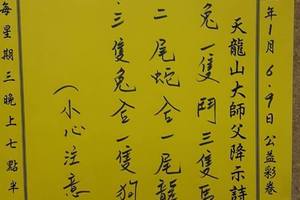 年1月6.9日公益彩卷
天龍山大師父降示詩
兔一隻鬥三隻馬
二尾蛇合一尾龍
三隻兔合一隻狗
(小心注意
每星期三晚上七點半